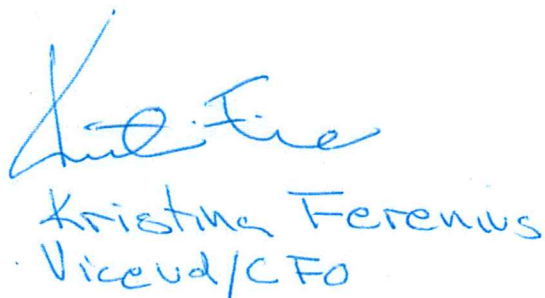 Kristina Ferenius
Vice vd/CFO